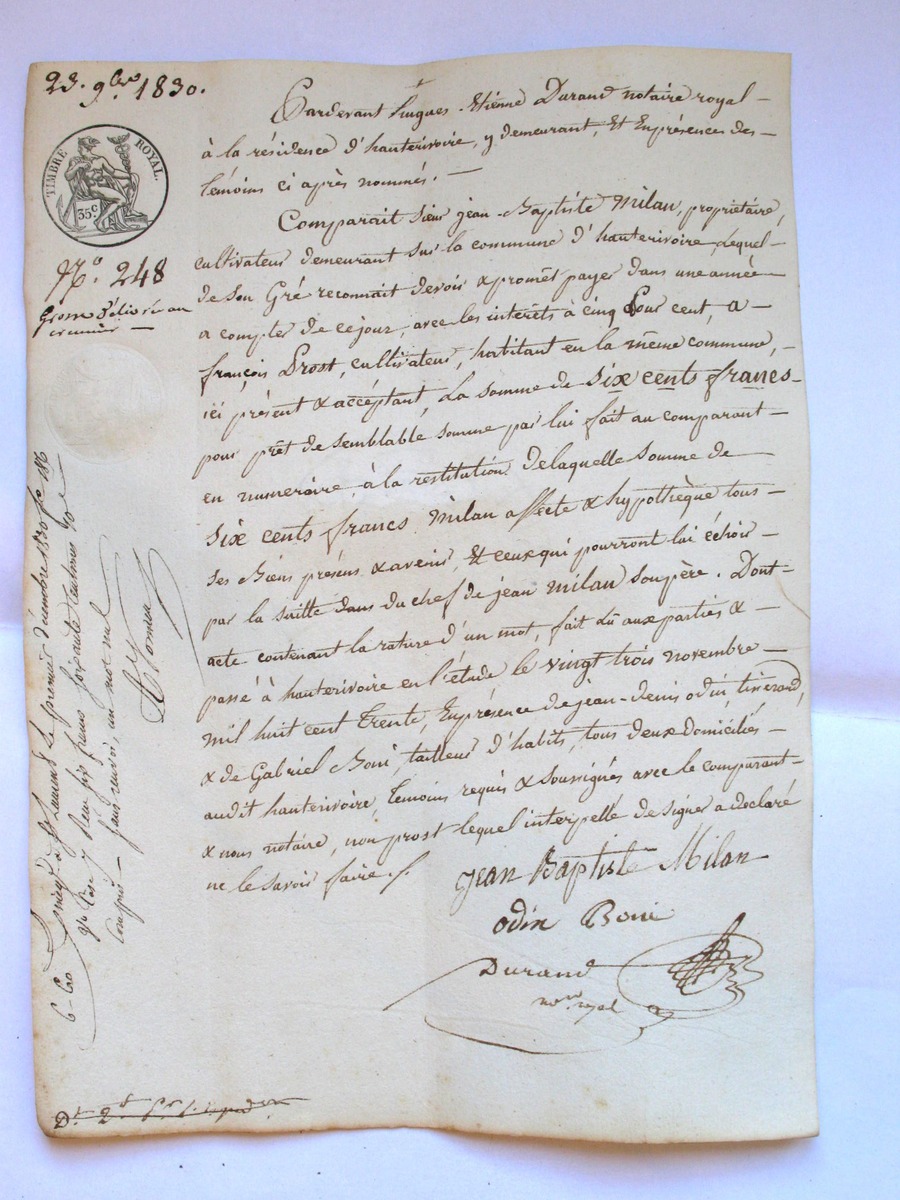 23. 9bre 1830.
TIMBRE ROYAL.
35 c
No. 248
Grosse délivrée au
créancier —
Pardevant hugues-Etienne Durand notaire royal —
à la résidence d'hauterivoire, y demeurant, Et Enprésences des —
témoins ci après nommés. —
Comparait sieur jean-Baptiste Milan, propriétaire,
cultivateur demeurant sur la commune d'hauterivoire Lequel —
de son Gré reconnait devoir & promêt payer dans une année
a compter de cejour, avec les intérêts à cinq pour cent, a —
françois Prost, cultivateur, habitant en la même commune, —
ici présent & accéptant, La somme de six cents francs —
pour prêt de semblable somme par lui fait au comparant —
en numeraire, à la restitution delaquelle somme de
six cents francs Milan affecte & hypothèque tous —
ses Biens présens & avenir, Et ceux qui pourront lui échoir —
par la suitte dans du chef de jean milan son père. Dont —
acte contenant la rature d'un mot, fait lû aux parties & —
passé à hauterivoire en l'étude le vingt trois novembre —
mil huit cent trente, Enprésence de jean-denis odin, tisserand,
& de Gabriel Boni, tailleur d'habits, tous deux domiciliés —
audit hauterivoire, témoins requis & soussignés avec le comparant —
& nous notaire, non prost lequel interpellé de signer a déclaré
ne le savoir faire ./.
jean Baptiste Milan
odin Boni
Durand
nore royal
Laurent Le premier décembre 1830 fo 186
six francs soixante centimes 10e
compris — sans renvoi, un mot nul